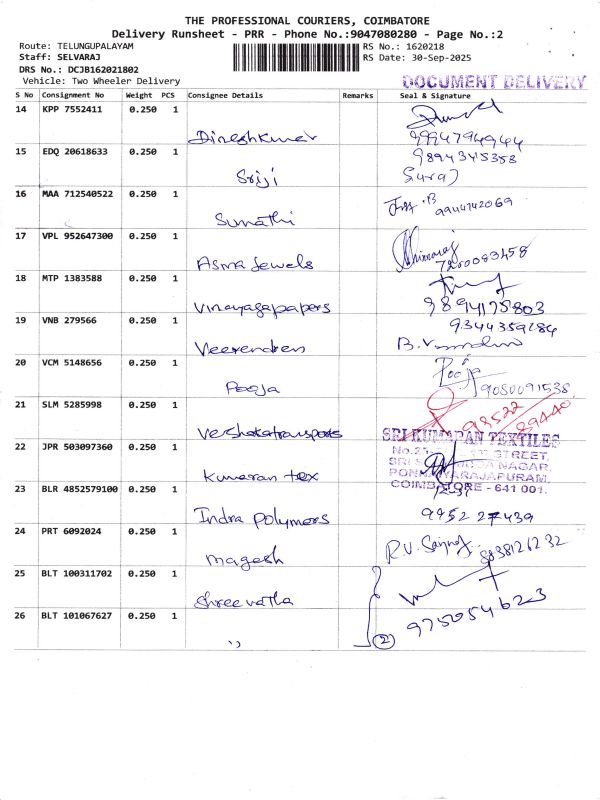 THE PROFESSIONAL COURIERS, COIMBATORE
Delivery Runsheet - PRR - Phone No.:9047080280 - Page No.:2
Route: TELUNGUPALAYAM RS No.: 1620218
Staff: SELVARAJ RS Date: 30-Sep-2025
DRS No.: DCJB162021802
Vehicle: Two Wheeler Delivery DOCUMENT DELIVERY
S No Consignment No Weight PCS Consignee Details Remarks Seal & Signature
14 KPP 7552411 0.250 1
Dineshkumar 9994794944
15 EDQ 20618633 0.250 1 9894345358
Sriji Suraj
16 MAA 712540522 0.250 1
Sumathi 9944142069
17 VPL 952647300 0.250 1
Asma Jewels 7200093458
18 MTP 1383588 0.250 1
Vinayagapapers 9894175803
19 VNB 279566 0.250 1 9344359284
Veerendren B.
20 VCM 5148656 0.250 1 Pooja
Pooja 9080091538
21 SLM 5285998 0.250 1 98522 89440
Vershakatransports SRI KUMARAN TEXTILES
22 JPR 503097360 0.250 1 STREET,
NAGAR,
Kumaran tex PONNAYARAJAPURAM,
23 BLR 4852579100 0.250 1 COIMBATORE - 641 001.
Indra Polymers 9952 27439
24 PRT 6092024 0.250 1 R.V.
Magesh
25 BLT 100311702 0.250 1
Shreevatha 9750546223
26 BLT 101067627 0.250 1
,, 2